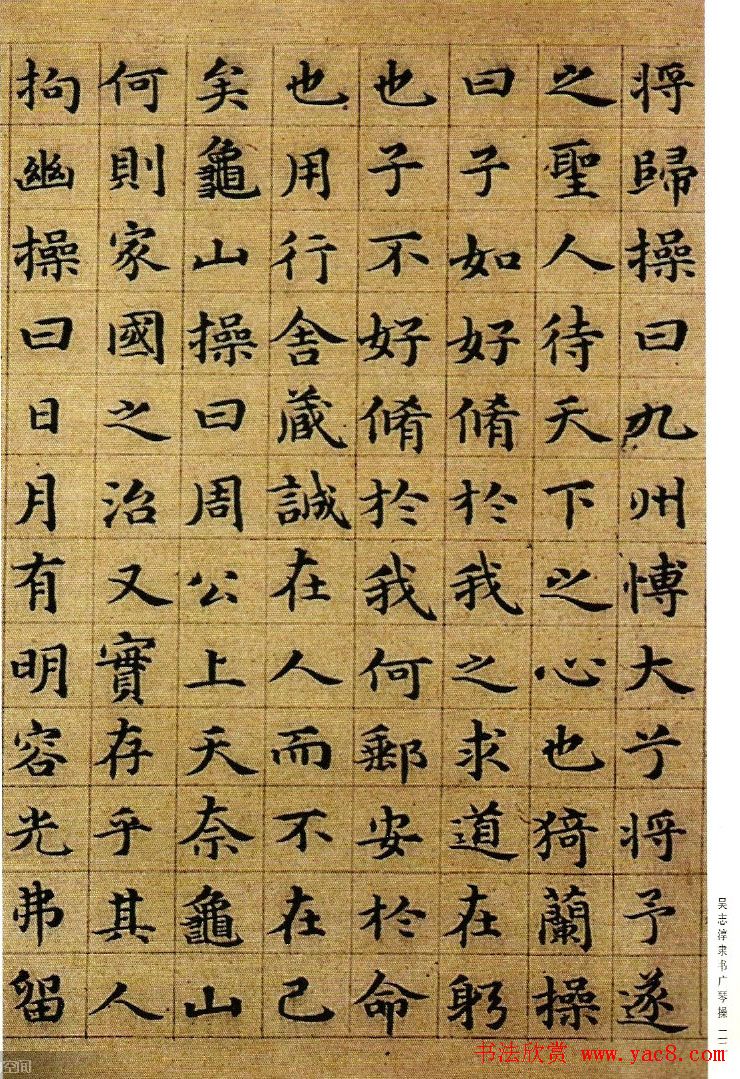 將歸操曰九州博大兮將予遂
之聖人待天下之心也猗蘭操
曰子如好脩於我之求道在躬
也子不好脩於我何郵安於命
也用行舍藏誠在人而不在己
矣龜山操曰周公上天奈龜山
何則家國之治又實存乎其人
拘幽操曰日月有明容光弗留
吴志淳隶书广琴操
书法欣赏 www.yac8.com
空间